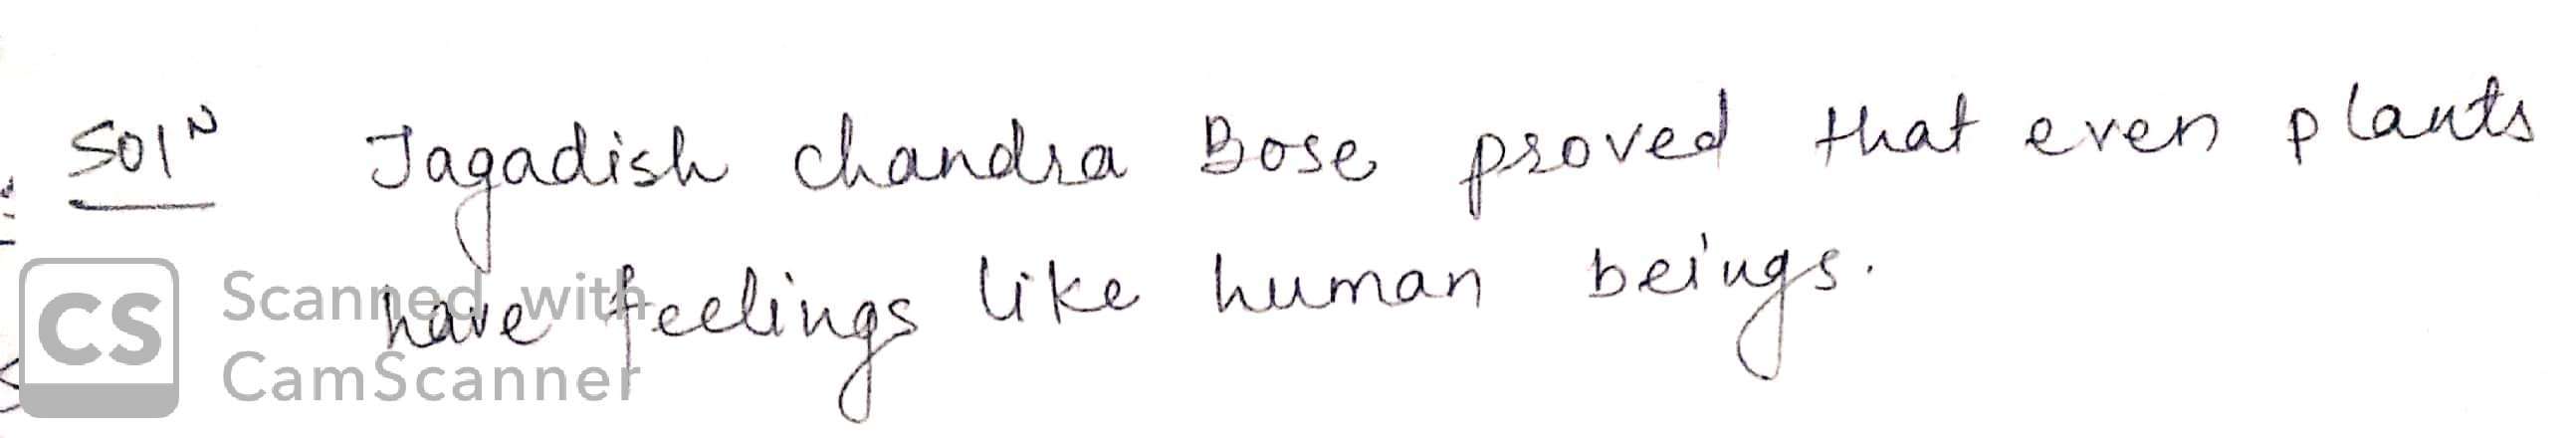 Soln Jagadish chandra Bose proved that even plants
have feelings like human beings.
CS Scanned with
CamScanner